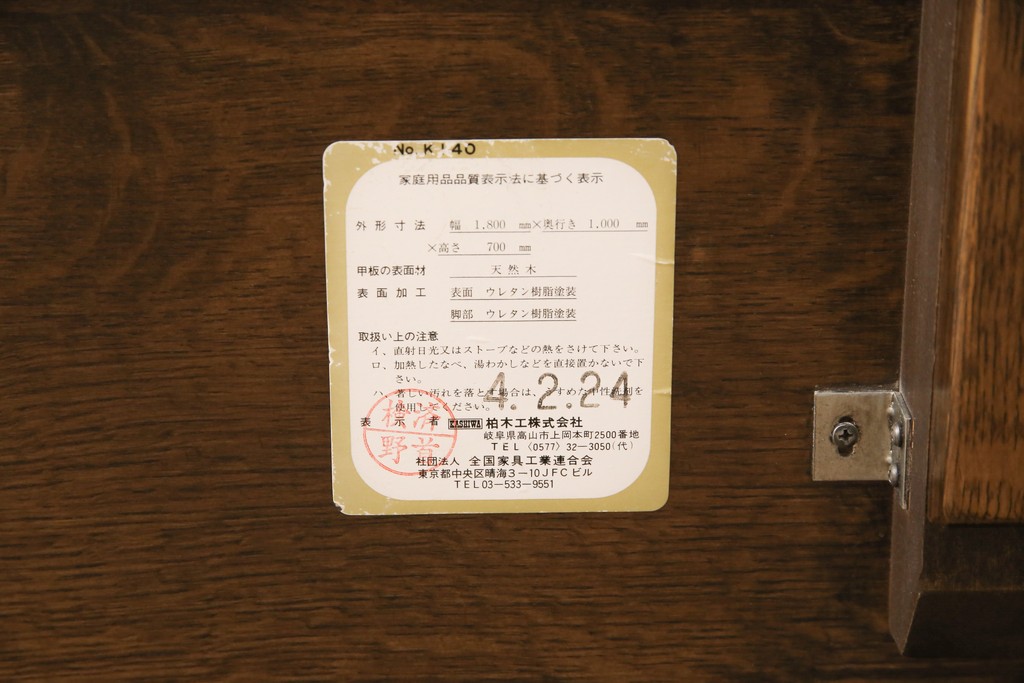 No. K140
家庭用品品質表示法に基づく表示
外形寸法 幅 1.800 mm×奥行き 1.000 mm
×高さ 700 mm
甲板の表面材 天然木
表面加工 表面 ウレタン樹脂塗装
脚部 ウレタン樹脂塗装
取扱い上の注意
イ、直射日光又はストーブなどの熱をさけて下さい。
ロ、加熱したなべ、湯わかしなどを直接置かないで下
さい。
ハ、著しい汚れを落とす場合は、うすめた中性洗剤を
使用してください。
4.2.24
表示者 KASHIWA 柏木工株式会社
岐阜県高山市上岡本町2500番地
TEL〈0577〉32―3050(代)
社団法人 全国家具工業連合会
東京都中央区晴海3―10JFCビル
TEL03―533―9551